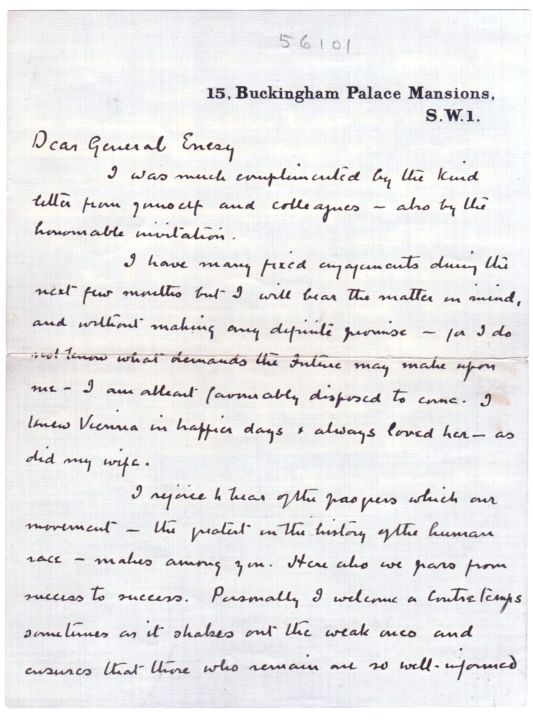 56101
15, Buckingham Palace Mansions,
S.W.1.
Dear General Enesy
I was much complimented by the kind
letter from yourself and colleagues – also by the
honourable invitation.
I have many fixed engagements during the
next few months but I will bear the matter in mind,
and without making any definite promise – for I do
not know what demands the Future may make upon
me – I am atleast favourably disposed to come. I
knew Vienna in happier days & always loved her – as
did my wife.
I rejoice to hear of the progress which our
movement – the greatest in the history of the human
race – makes among you. Here also we pass from
success to success. Personally I welcome a Contretemps
sometimes as it shakes out the weak ones and
ensures that those who remain are so well-informed